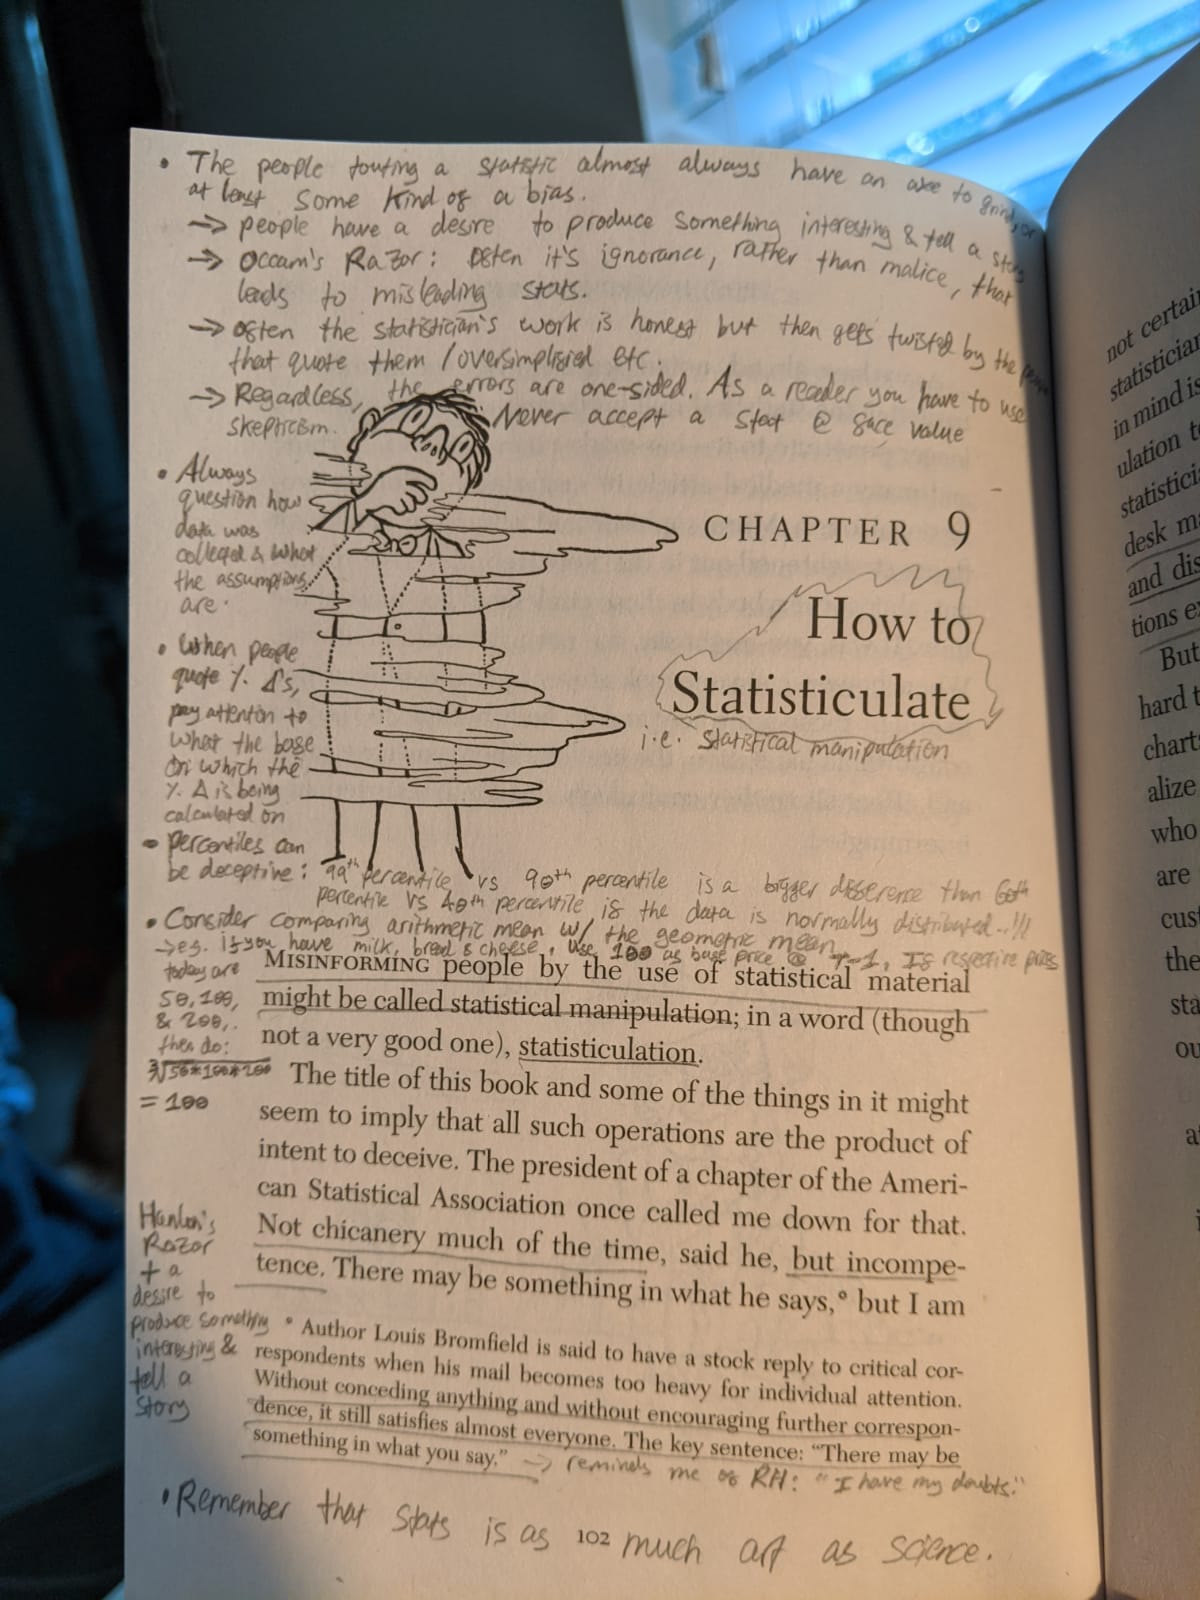 • The people touting a statistic almost always have an axe to grind, or
at least some kind of a bias.
→ people have a desire to produce something interesting & tell a story
→ Occam's Razor: Often it's ignorance, rather than malice, that
leads to misleading stats.
→ often the statistician's work is honest but then gets twisted by the people
that quote them / oversimplified etc.
→ Regardless, the errors are one-sided. As a reader you have to use
skepticism. Never accept a stat @ face value
• Always
question how
data was
collected & what
the assumptions
are.
• When people
quote %. Δ's,
pay attention to
what the base
on which the
%. Δ is being
calculated on
• percentiles can
be deceptive: 99th percentile vs 90th percentile is a bigger difference than 60th
percentile vs 40th percentile if the data is normally distributed..!!!
• Consider comparing arithmetic mean w/ the geometric mean
→ e.g. if you have milk, bread & cheese, use 100 as base price @ If respective prices
today are
50, 100,
& 200,.
then do:
∛50*100*200
= 100
CHAPTER 9
How to
Statisticulate
i.e. statistical manipulation
MISINFORMING people by the use of statistical material
might be called statistical manipulation; in a word (though
not a very good one), statisticulation.
The title of this book and some of the things in it might
seem to imply that all such operations are the product of
intent to deceive. The president of a chapter of the Ameri-
can Statistical Association once called me down for that.
Not chicanery much of the time, said he, but incompe-
tence. There may be something in what he says,* but I am
Hanlon's
Razor
+ a
desire to
produce something
interesting &
tell a
story
* Author Louis Bromfield is said to have a stock reply to critical cor-
respondents when his mail becomes too heavy for individual attention.
Without conceding anything and without encouraging further correspon-
dence, it still satisfies almost everyone. The key sentence: "There may be
something in what you say." → reminds me of RH: "I have my doubts."
• Remember that stats is as much art as science.
102
not certain
statistician
in mind is
ulation to
statistici
desk ma
and dis
tions e
But
hard t
chart
alize
who
are
cus
the
sta
ou
a